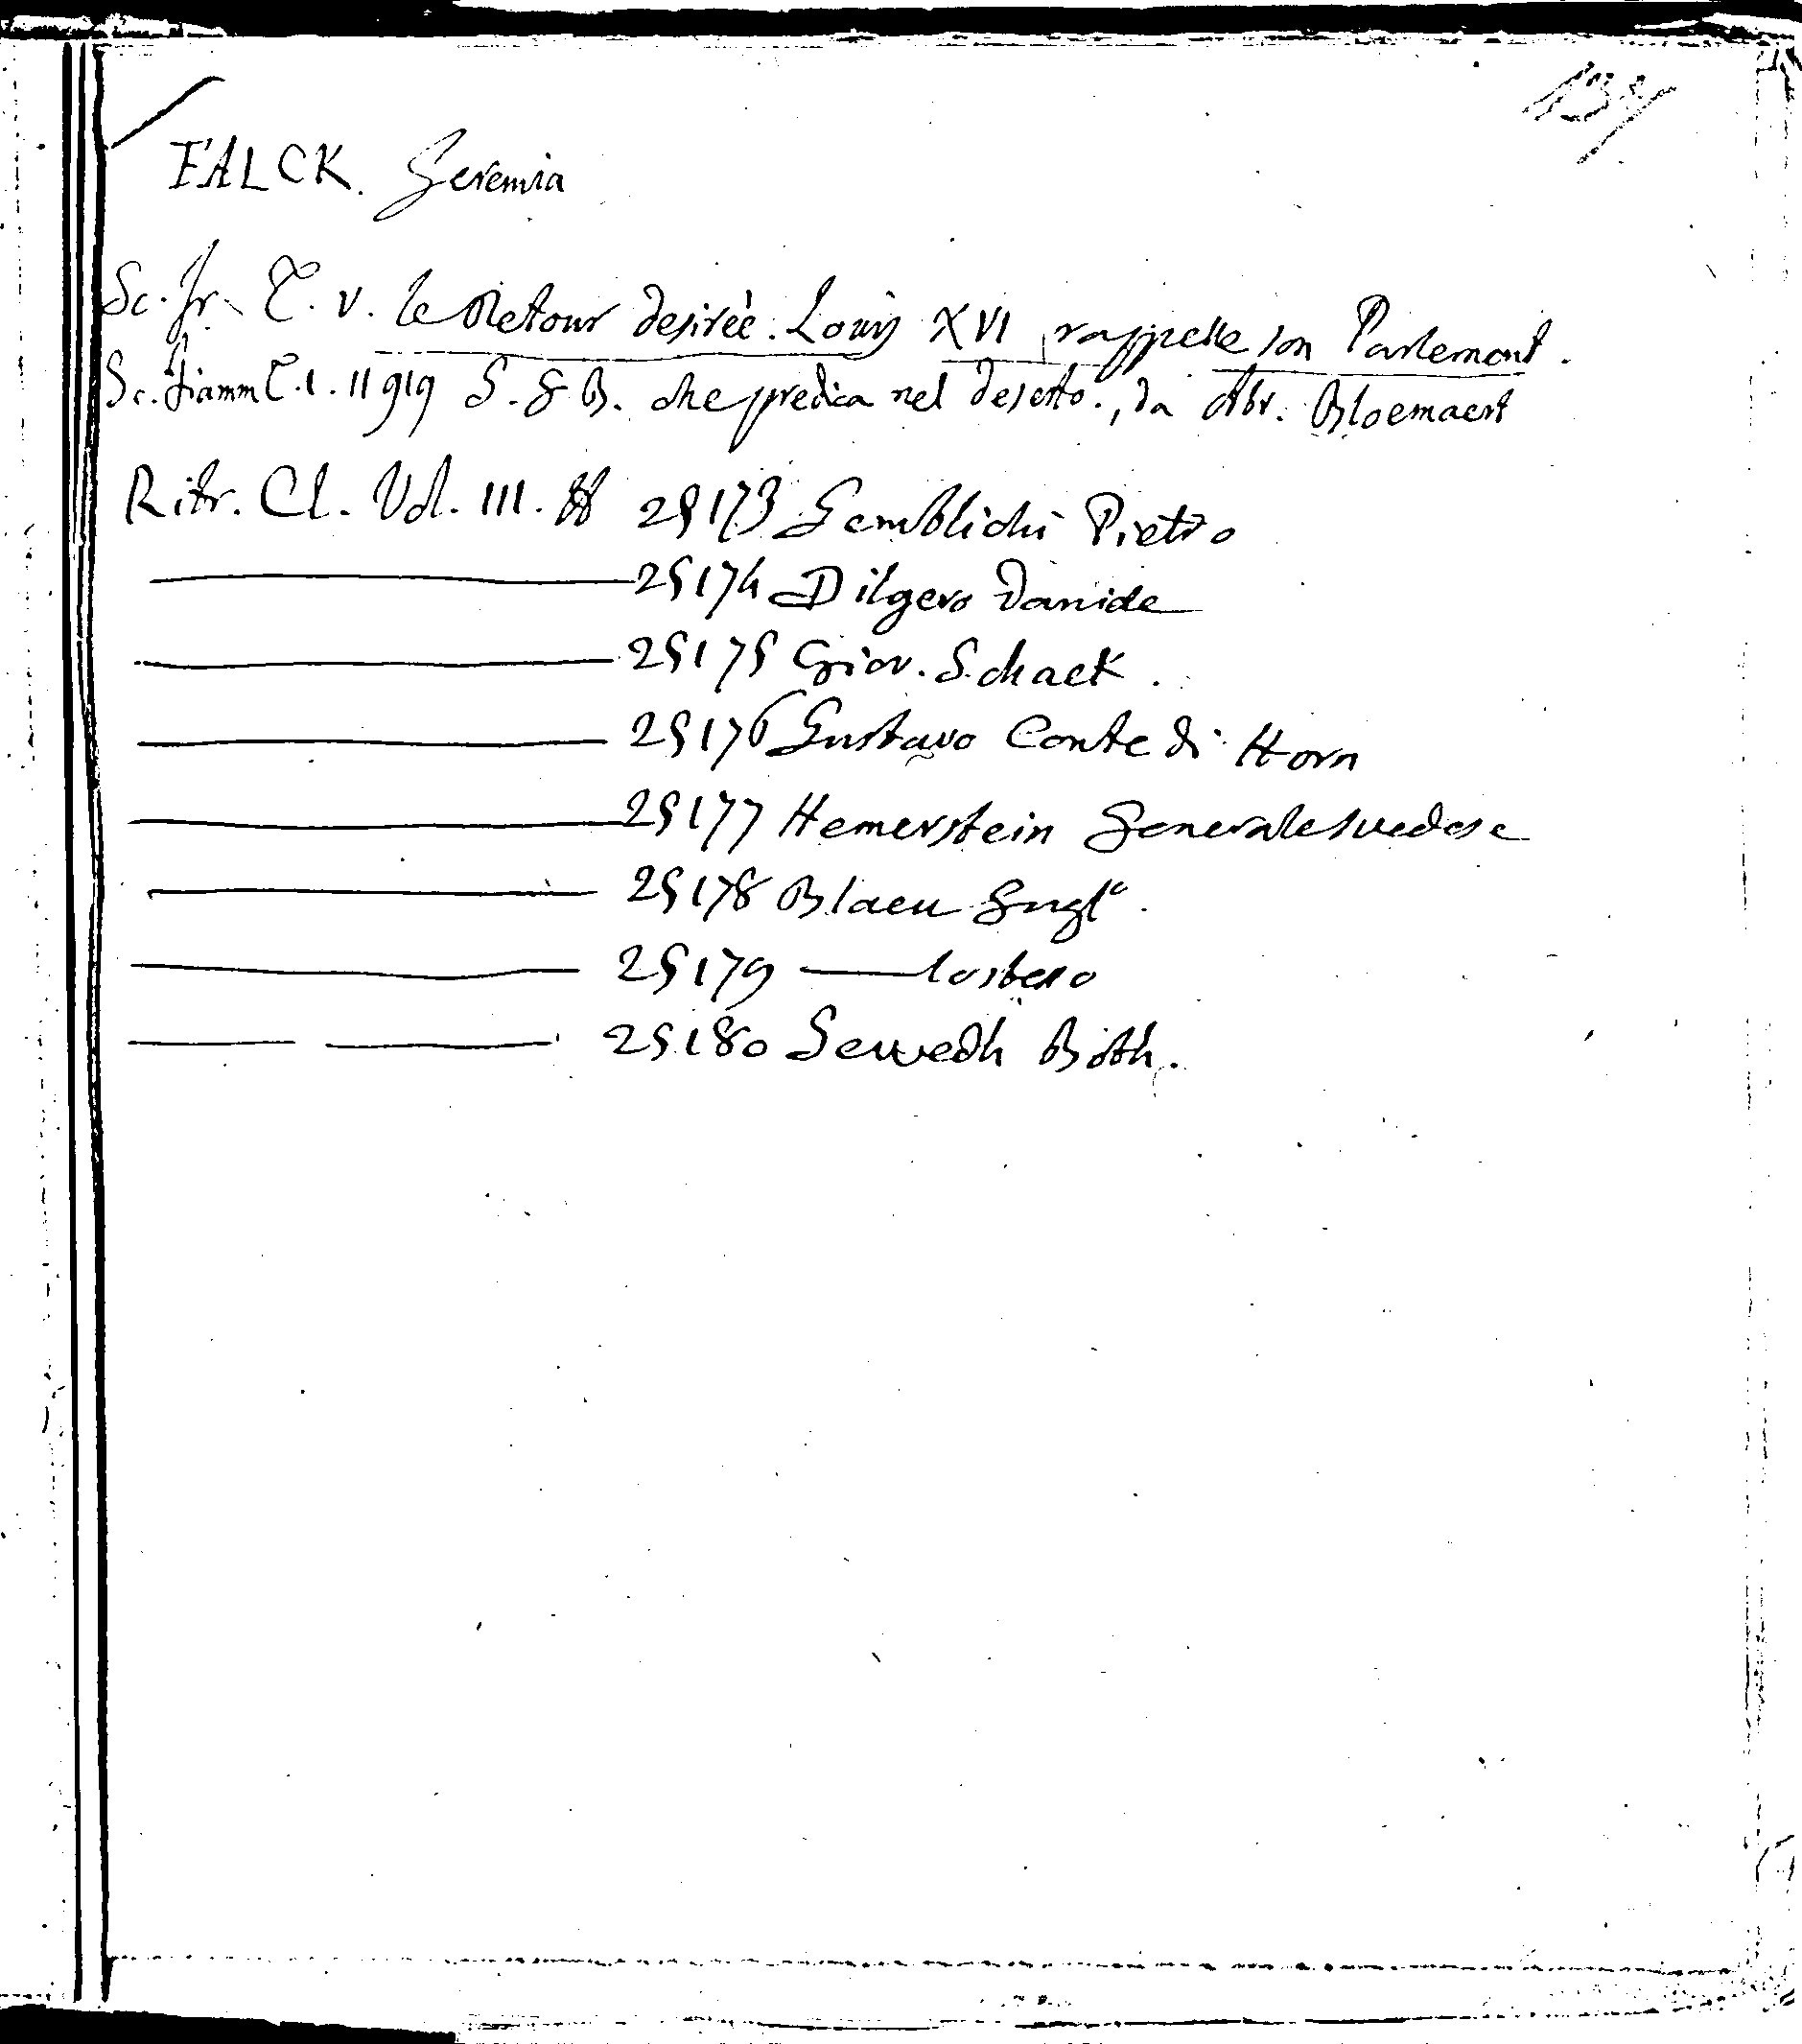 137
FALCK. Geremia
Sc. fr. T. V. le Retour desireè. Louis XVI rappelle son Parlement.
Sc. fiamm T. I. 11919 S. G B. che predica nel deserto., da Abr. Bloemaert
Ritr. Cl. Vol. III. # 25173 Gemblichi Pietro
25174 Dilgero Daniele
25175 Giov. Schaek.
25176 Gustavo Conte di Horn
25177 Hemerstein Generale svedese
25178 Blaeu Gugl.º
25179 — lo stesso
25180 Sewedh Böth.